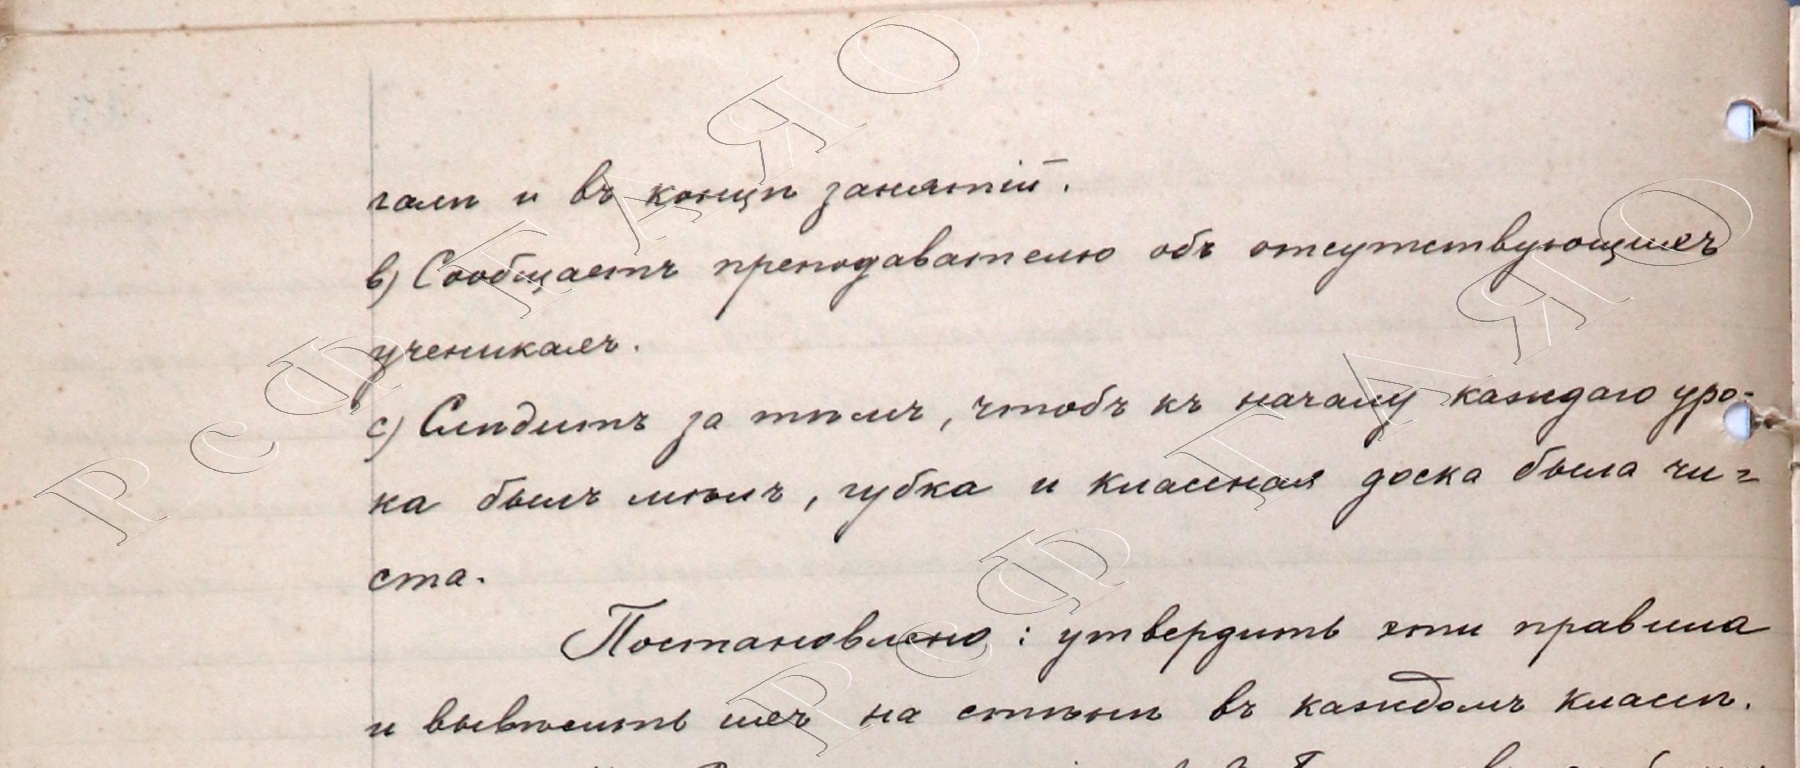 галѣ и въ концѣ занятій.
в) Сообщаетъ преподавателю объ отсутствующихъ
ученикахъ.
с) Слѣдитъ за тѣмъ, чтобъ къ началу каждаго уро-
ка былъ мѣлъ, губка и классная доска была чи-
ста.
Постановлено: утвердить эти правила
и вывѣсить ихъ на стѣнѣ въ каждомъ классѣ.
РСФ ГАЯО
РСФ ГАЯО